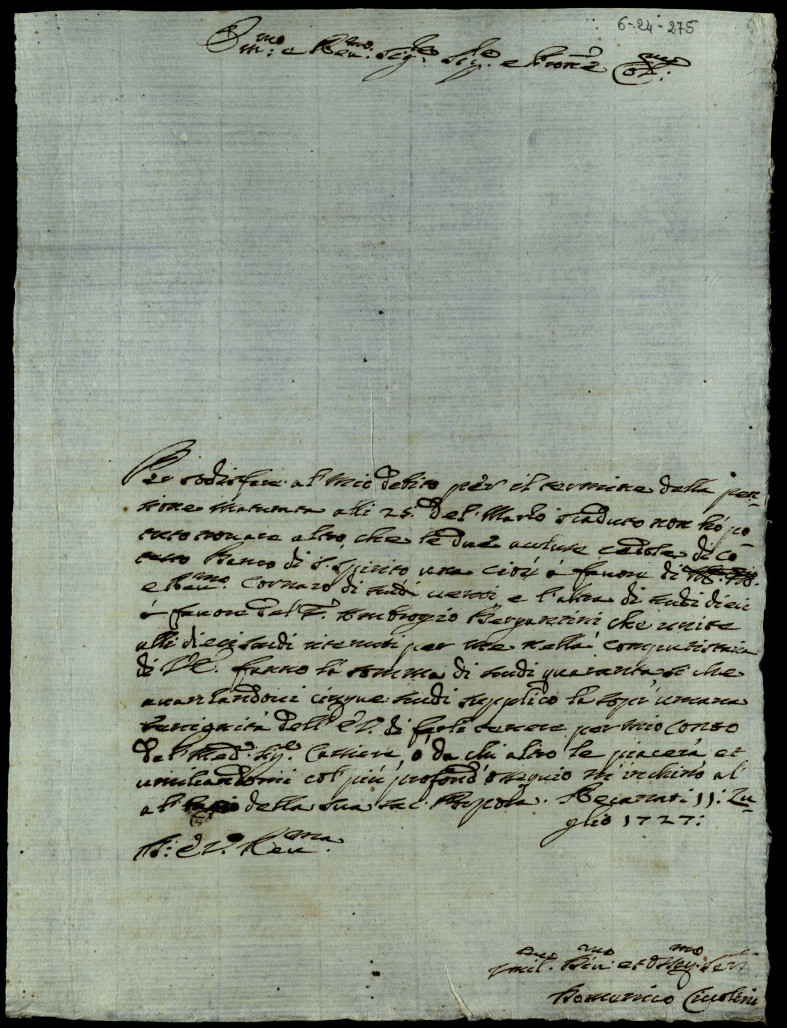 6-24-275
Em.mo e Reu.mo Sig.re Sig.re e Pron.e Col.mo
Per sodisfare al mio debito per il termine della pen-
sione maturata alli 25. del Marzo scaduto non hò po
tuto trouare altro, che le due accluse cedole di cō
tanto Banco di S. Spirito una cioè à fauore di
e Reu.mo Cornaro di scudi uenti e l'altra di scudi dieci
à fauore del P. Ambrogio Bergantini che unite
alli dieci scudi ritenuti per me nella
di V.E. fanno la somma di scudi quaranta, si che
auanzandoci cinque scudi supplico la sopr'umana
benignità dell'E.V. di farli tenere per mio conto
del med.o Sig.re Cassiere, ò da chi altro le piacerà et
umiliandomi col più profond'ossequio m'inchino al
al della sua Sac. Porpora. Recanati 11: Lu-
glio 1727:
Di: E.V. Reu.ma
Umil.mo Diu.mo et Obblig.mo Ser.
Domenico